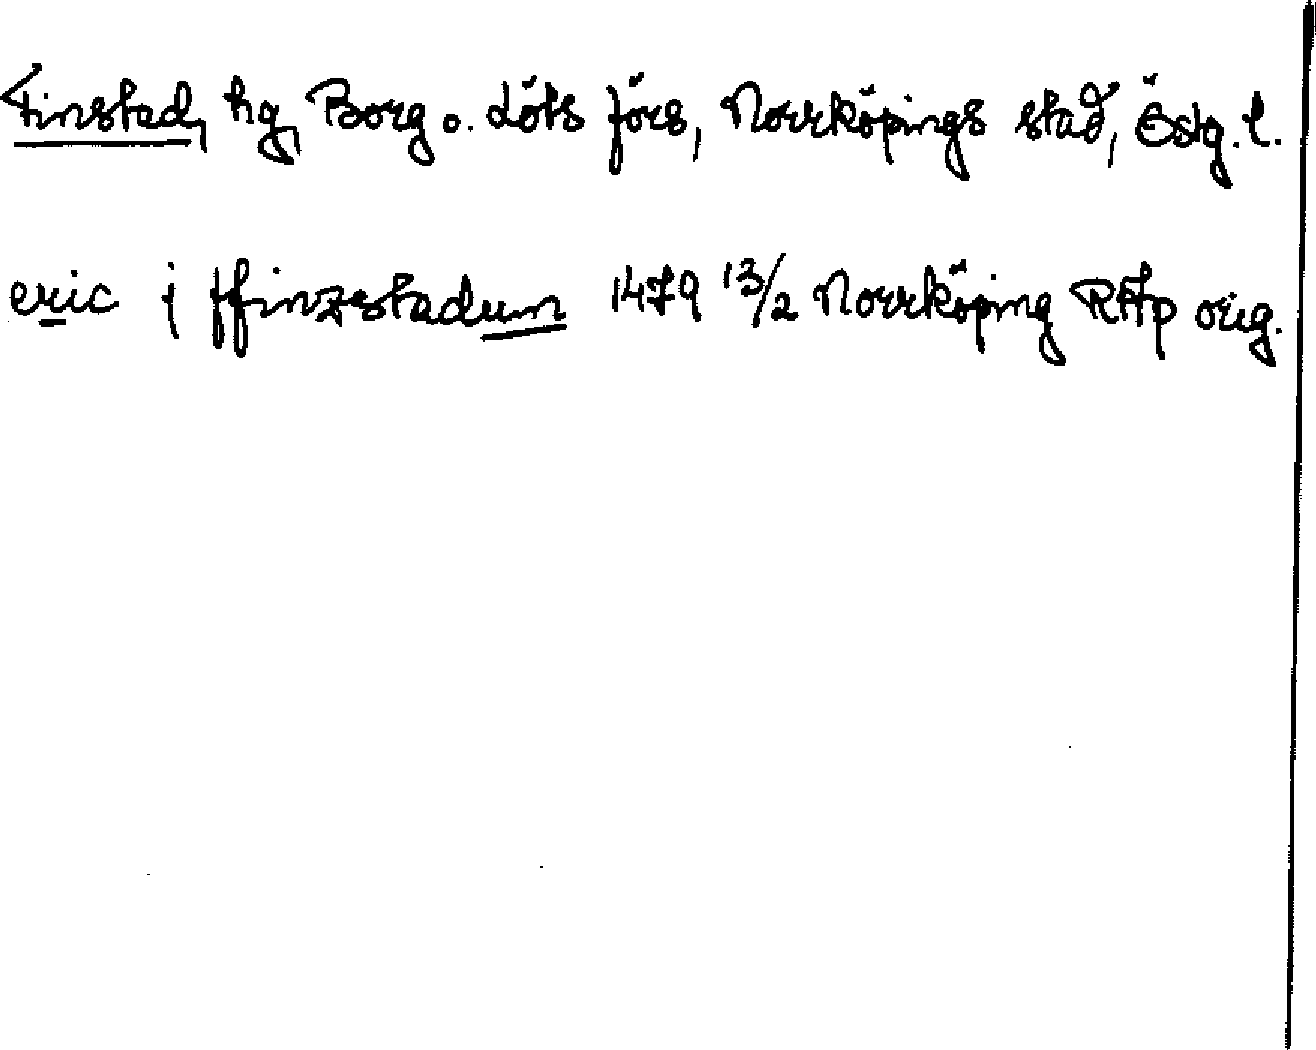 Finstad, hg, Borg o. Löts förs, Norrköpings stad, Östg. l.
eric j ffinzstadum 1479 13/2 Norrköping RAp orig.